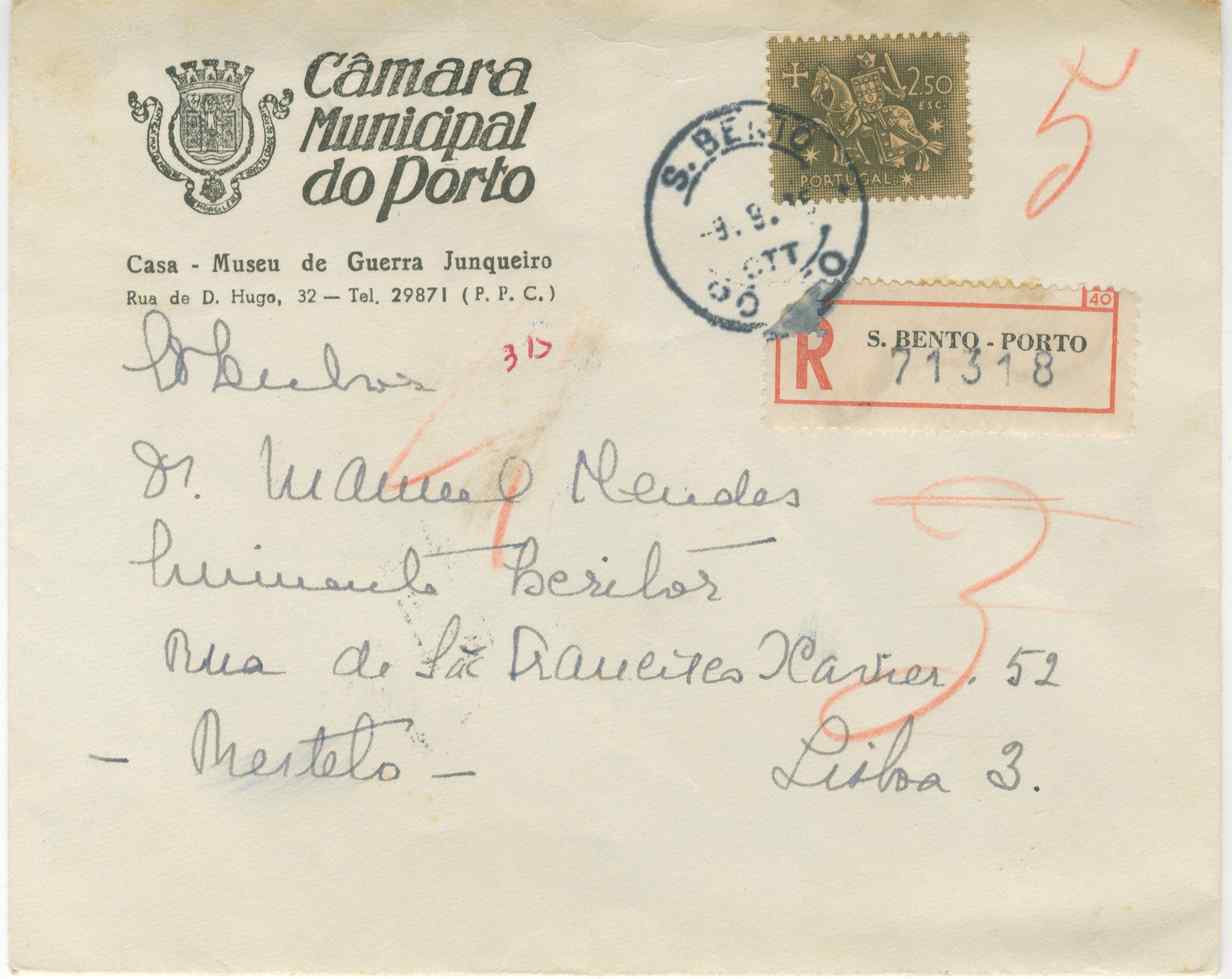 Câmara
Municipal
do Porto
Casa - Museu de Guerra Junqueiro
Rua de D. Hugo, 32 — Tel. 29871 ( P. P. C. )
2$50
ESC.
PORTUGAL
S. BENTO
9. 9.
CTT
5
40
R S. BENTO - PORTO
71318
Dr. Manuel Mendes
Eminente Escritor
3
Rua de São Francisco Xavier. 52
- Restelo -
Lisboa 3.